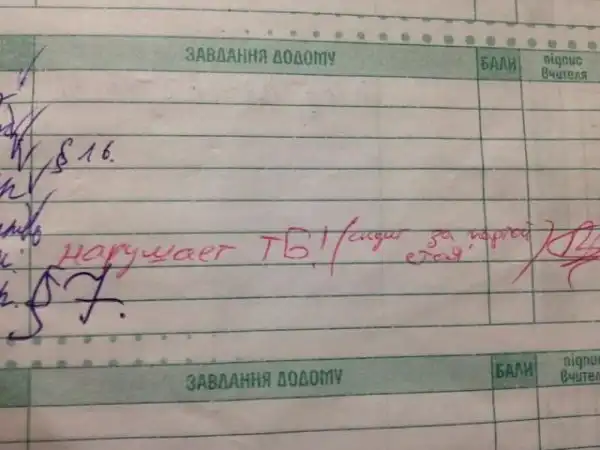 ЗАВДАННЯ ДОДОМУ БАЛИ підпис Вчителя
§ 16.
нарушает ТБ! (сидит за партой стоя)
§ 7.
ЗАВДАННЯ ДОДОМУ БАЛИ підпис Вчителя